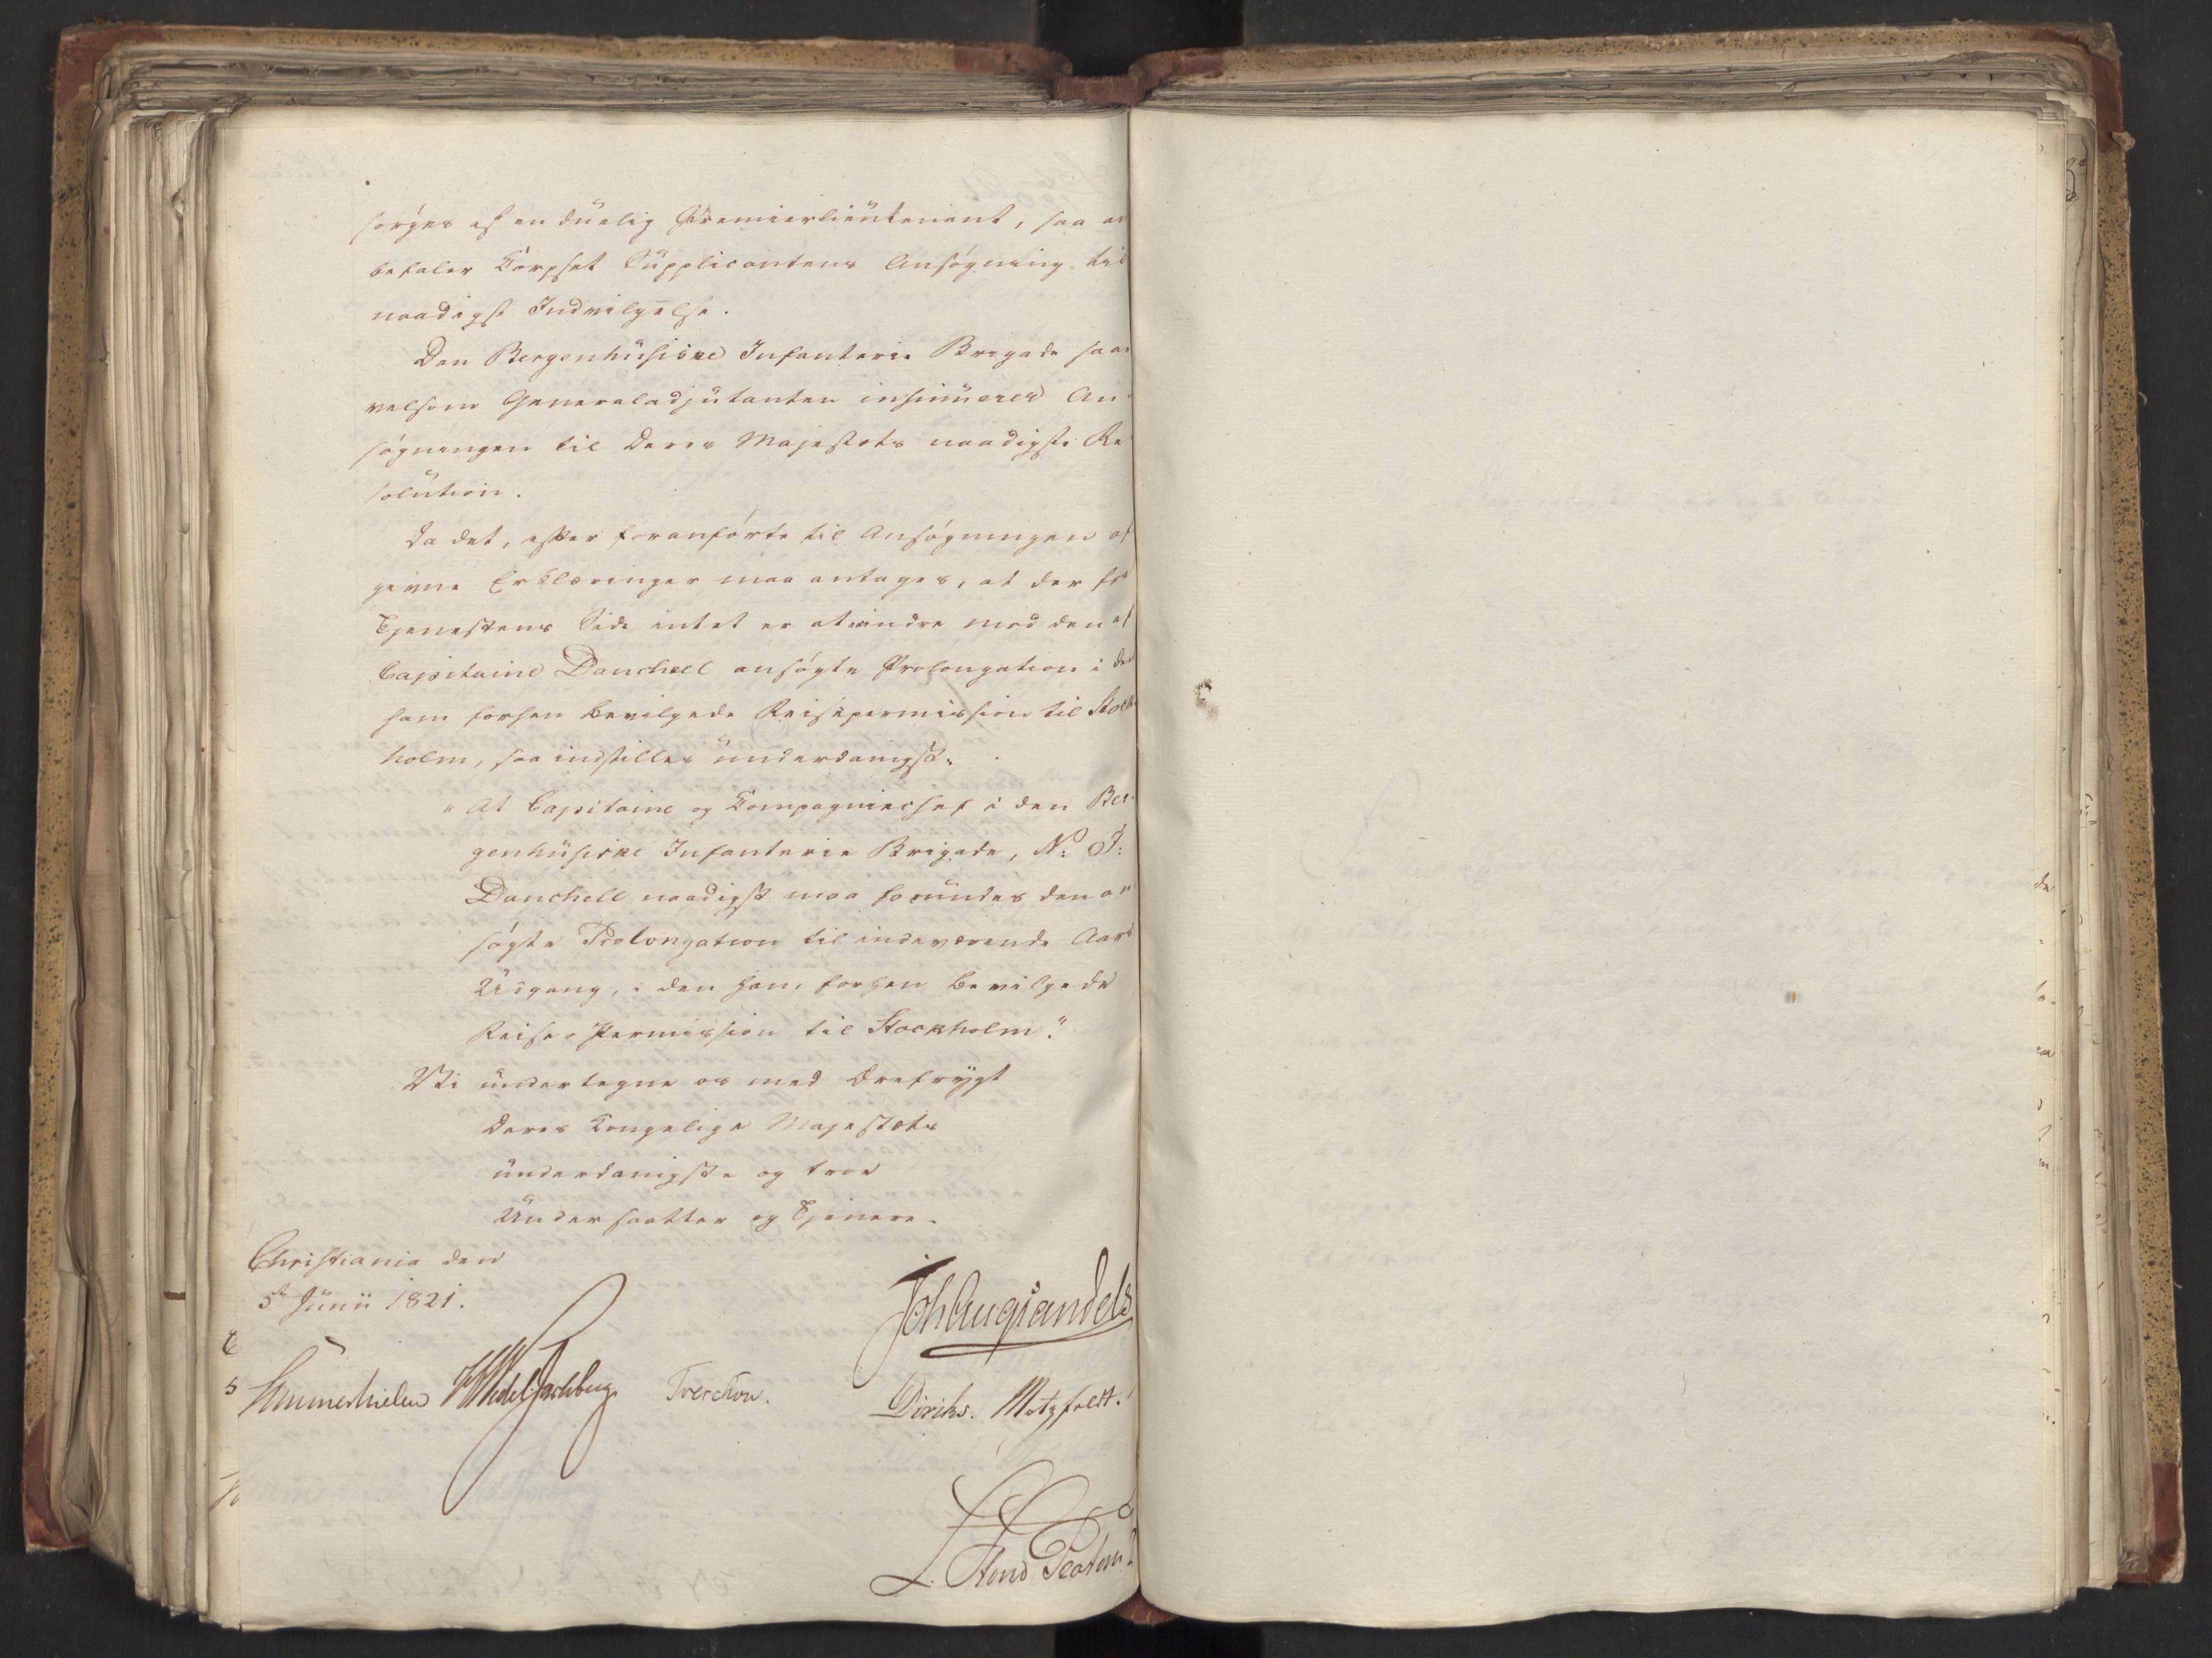 sørges af en duelig Premierlieutenant, saa an
befaler Corpset Supplicantens Ansøgning til
naadigst Indvilgelse.
Den Bergenhusiske Infanterie Brigade saa
velsom Generaladjutanten insinuerer An
søgningen til Deres Majestæts naadigste Re
solution.
Da det, efter foranførte til Ansøgningen af
givne Erklæringer maa antages, at der fra
Tjenestens Side intet er at erindre mod den af
Capitaine Danchell ansøgte Prolongation i den
ham forhen bevilgede Reisepermission til Stock
holm, saa indstilles underdanigst:
"At Capitaine og Compagniechef i den Ber
genhusiske Infanterie Brigade, N: J:
Danchell naadigst maa forundes den an
søgte Prolongation til indeværende Aars
Udgang, i den ham forhen bevilgede
Reise-Permission til Stockholm."
Vi undertegne os med Ærefrygt
Deres Kongelige Majestæts
underdanigste og troe
Undersaatter og Tjenere.
Christiania den
5te Junii 1821.
Joh Aug Sandels
Sommerhielm HWedel Jarlsberg Treschow.
Diriks. Motzfeldt.